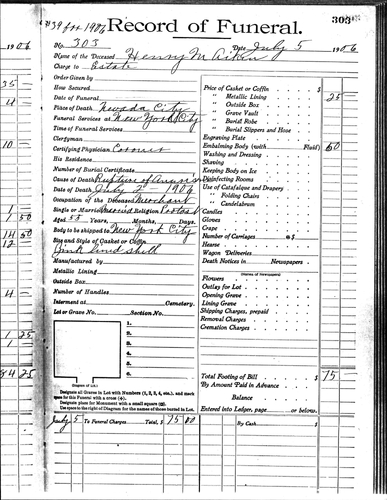 #39 for 1906
Record of Funeral.
303
1906
No. 303
Date July 5 1906
Name of the Deceased Henry M Aitkin
Charge to Estate
Order Given by
How Secured
Date of Funeral
Place of Death Nevada City
Funeral Services at New York City
Time of Funeral Services
Clergyman
Certifying Physician Coroner
His Residence
Number of Burial Certificate
Cause of Death Rupture of
Date of Death July 2 1906
Occupation of the Deceased Merchant
Single or Married Married Religion
Aged 55 Years, Months, Days
Body to be shipped to New York City
Size and Style of Casket or Coffin
Zink lined shell
Manufactured by
Metallic Lining
Outside Box
Number of Handles
Interment at Cemetery.
Lot or Grave No. Section No.
1.
2.
3.
4.
5.
6.
(Diagram of Lot.)
Designate all Graves in Lot with Numbers (1, 2, 3, 4, etc.), and mark
space for this Funeral with a cross (+).
Designate place for Monument with a small square (□).
Use space to the right of Diagram for the names of those buried in Lot.
July 5 To Funeral Charges Total, $ 75 00
Price of Casket or Coffin $
" Metallic Lining 25
" Outside Box
" Grave Vault
" Burial Robe
" Burial Slippers and Hose
Engraving Plate
Embalming Body (with Fluid) 50
Washing and Dressing
Shaving
Keeping Body on Ice
Disinfecting Rooms
Use of Catafalque and Drapery
" Folding Chairs
" Candelabrum
Candles
Gloves
Crape
Number of Carriages @ $
Hearse
Wagon Deliveries
Death Notices in Newspapers
(Names of Newspapers)
Flowers
Outlay for Lot
Opening Grave
Lining Grave
Shipping Charges, prepaid
Removal Charges
Cremation Charges
Total Footing of Bill $ 75
By Amount Paid in Advance
Balance
Entered into Ledger, page or below.
By Cash $
35
4
10
1
1 50
14 50
12
4
1 25
1
84 25